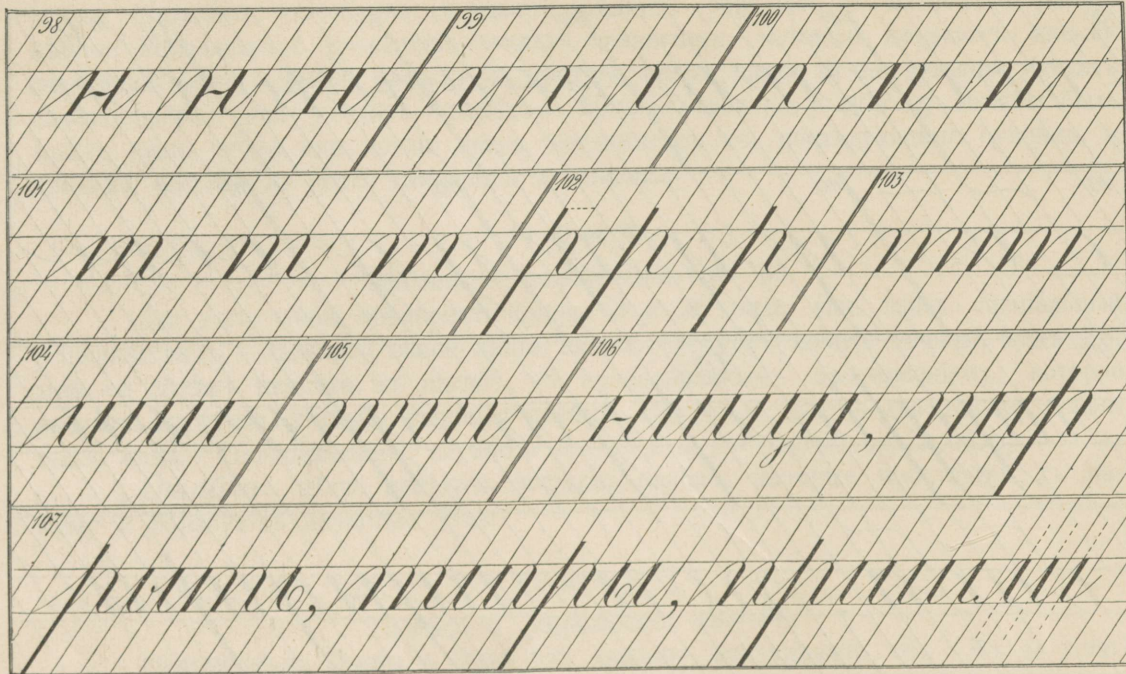 98 н н н 99 г г г 100 п п п
101 т т т 102 р р р 103
104 105 106 нищи, пир
107 рыть, тигры, пришли